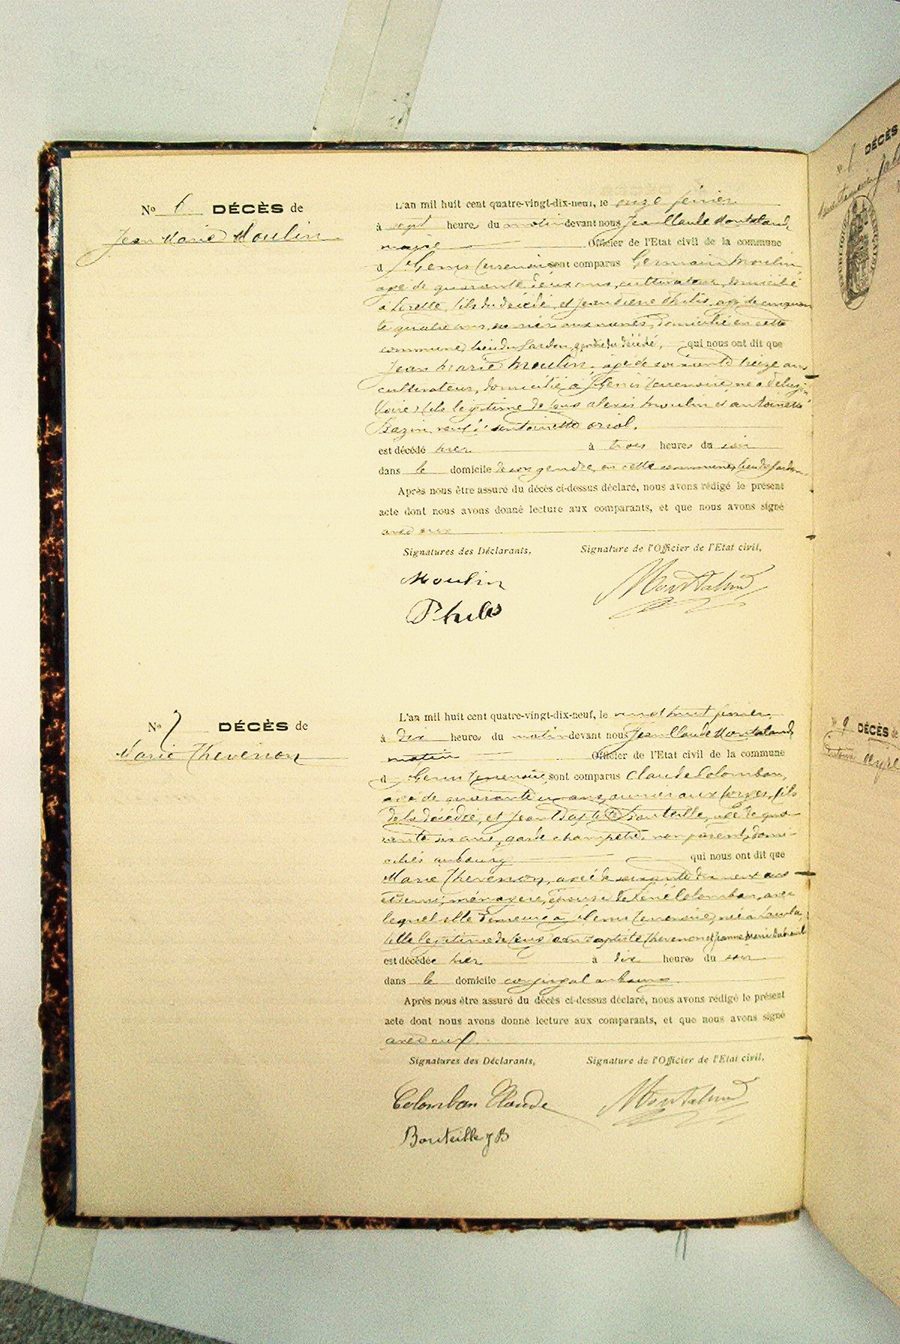 No 6 DÉCÈS de
Jean Marie Moulin
L'an mil huit cent quatre-vingt-dix-neuf, le onze février
à sept heures du matin devant nous Jean Claude Montaland,
maire Officier de l'Etat civil de la commune
d sont comparus Germain Moulin,
âgé de quarante deux ans, cultivateur, domicilié
à fils du décédé, et Jean Pierre Philis, âgé de cinquan
te quatre ans, domicilié en cette
commune, lieu du Sardon, gendre du décédé, qui nous ont dit que
Jean Marie Moulin, âgé de soixante treize ans
cultivateur, domicilié à St Genis Terrenoire, né à
Loire) fils légitime de feus Alexis Moulin et Antoinette
Bazin, veuf d'Antoinette Oriol.
est décédé hier à trois heures du soir
dans le domicile de son gendre, en cette commune, lieu du Sardon.
Après nous être assuré du décès ci-dessus déclaré, nous avons rédigé le présent
acte dont nous avons donné lecture aux comparants, et que nous avons signé
avec eux
Signatures des Déclarants, Signature de l'Officier de l'Etat civil,
Moulin Montaland
Philis
No 7 DÉCÈS de
Marie Thevenon
L'an mil huit cent quatre-vingt-dix-neuf, le vingt huit février
à dix heures du matin devant nous Jean Claude Montaland,
matin Officier de l'Etat civil de la commune
d St Genis Terrenoire, sont comparus Claude Colomban,
âgé de quarante un ans, ouvrier aux forges, fils
de la décédée, et Jean Bapte Bouteille, âgé de qua-
rante six ans, garde champêtre, non parent, domi-
ciliés au bourg qui nous ont dit que
Marie Thevenon, âgée de soixante dix neuf ans
et demi, ménagère, épouse de René Colomban, avec
lequel elle demeure à St Genis Terrenoire, née à
fille légitime de feus Jean Baptiste Thevenon et Jeanne Marie
est décédée hier à dix heures du soir
dans le domicile conjugal au bourg.
Après nous être assuré du décès ci-dessus déclaré, nous avons rédigé le présent
acte dont nous avons donné lecture aux comparants, et que nous avons signé
avec eux.
Signatures des Déclarants, Signature de l'Officier de l'Etat civil,
Colomban Claude Montaland
Bouteille J B
DÉCÈS
No 9 DÉCÈS de